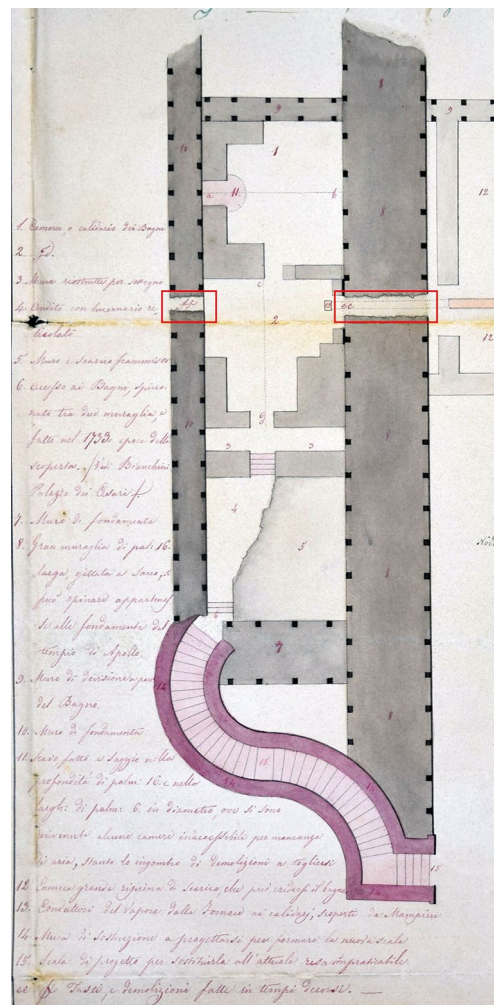 1. Camera, o calidario dei Bagni
2. id.
3. Muro ricostrutto per sostegno
4. Andito con lucernario re-
5. Muro e scarico frammisto
6. Accesso ai Bagno,
nato tra due muraglia, e
fatto nel 1733. epoca della
scoperta. (Vedi Bianchini
Palazzo dei Cesari).
7. Muro di fondamento
8. Gran muraglia di palmi 16.
larga, gittata a sacco, e
può opinare apparten
si alle fondamenta del
tempio di Apollo.
9. Muro di divisione a
del Bagno.
10. Muro di fondamento
11. Scavo fatto a saggio nella
profondità di palmi 16. e nella
largh: di palmi 6. in diametro, ove si sono
rinvenute alcune camere inaccessibili per mancanza
di aria, stante lo ingombro di demolizioni a togliersi
12 Camera grande ripiena di scarico, che può credersi il bagno
13. Conduttori del Vapore dalla Fornace ai calidarj, scoperti da
14. Mura di sostruzione a progettarsi per formare la nuova scala
15. Scala di progetto per sostituirla all'attuale resa impraticabile.
ee ff Tasti, e demolizioni fatte in tempi decorsi.
9
8
9
10
1
a
11.
b
8
12
c
ff
ee
2
12
g
10
3
3
8
4
5
6
8
7
14
15
14
13
8
15
14